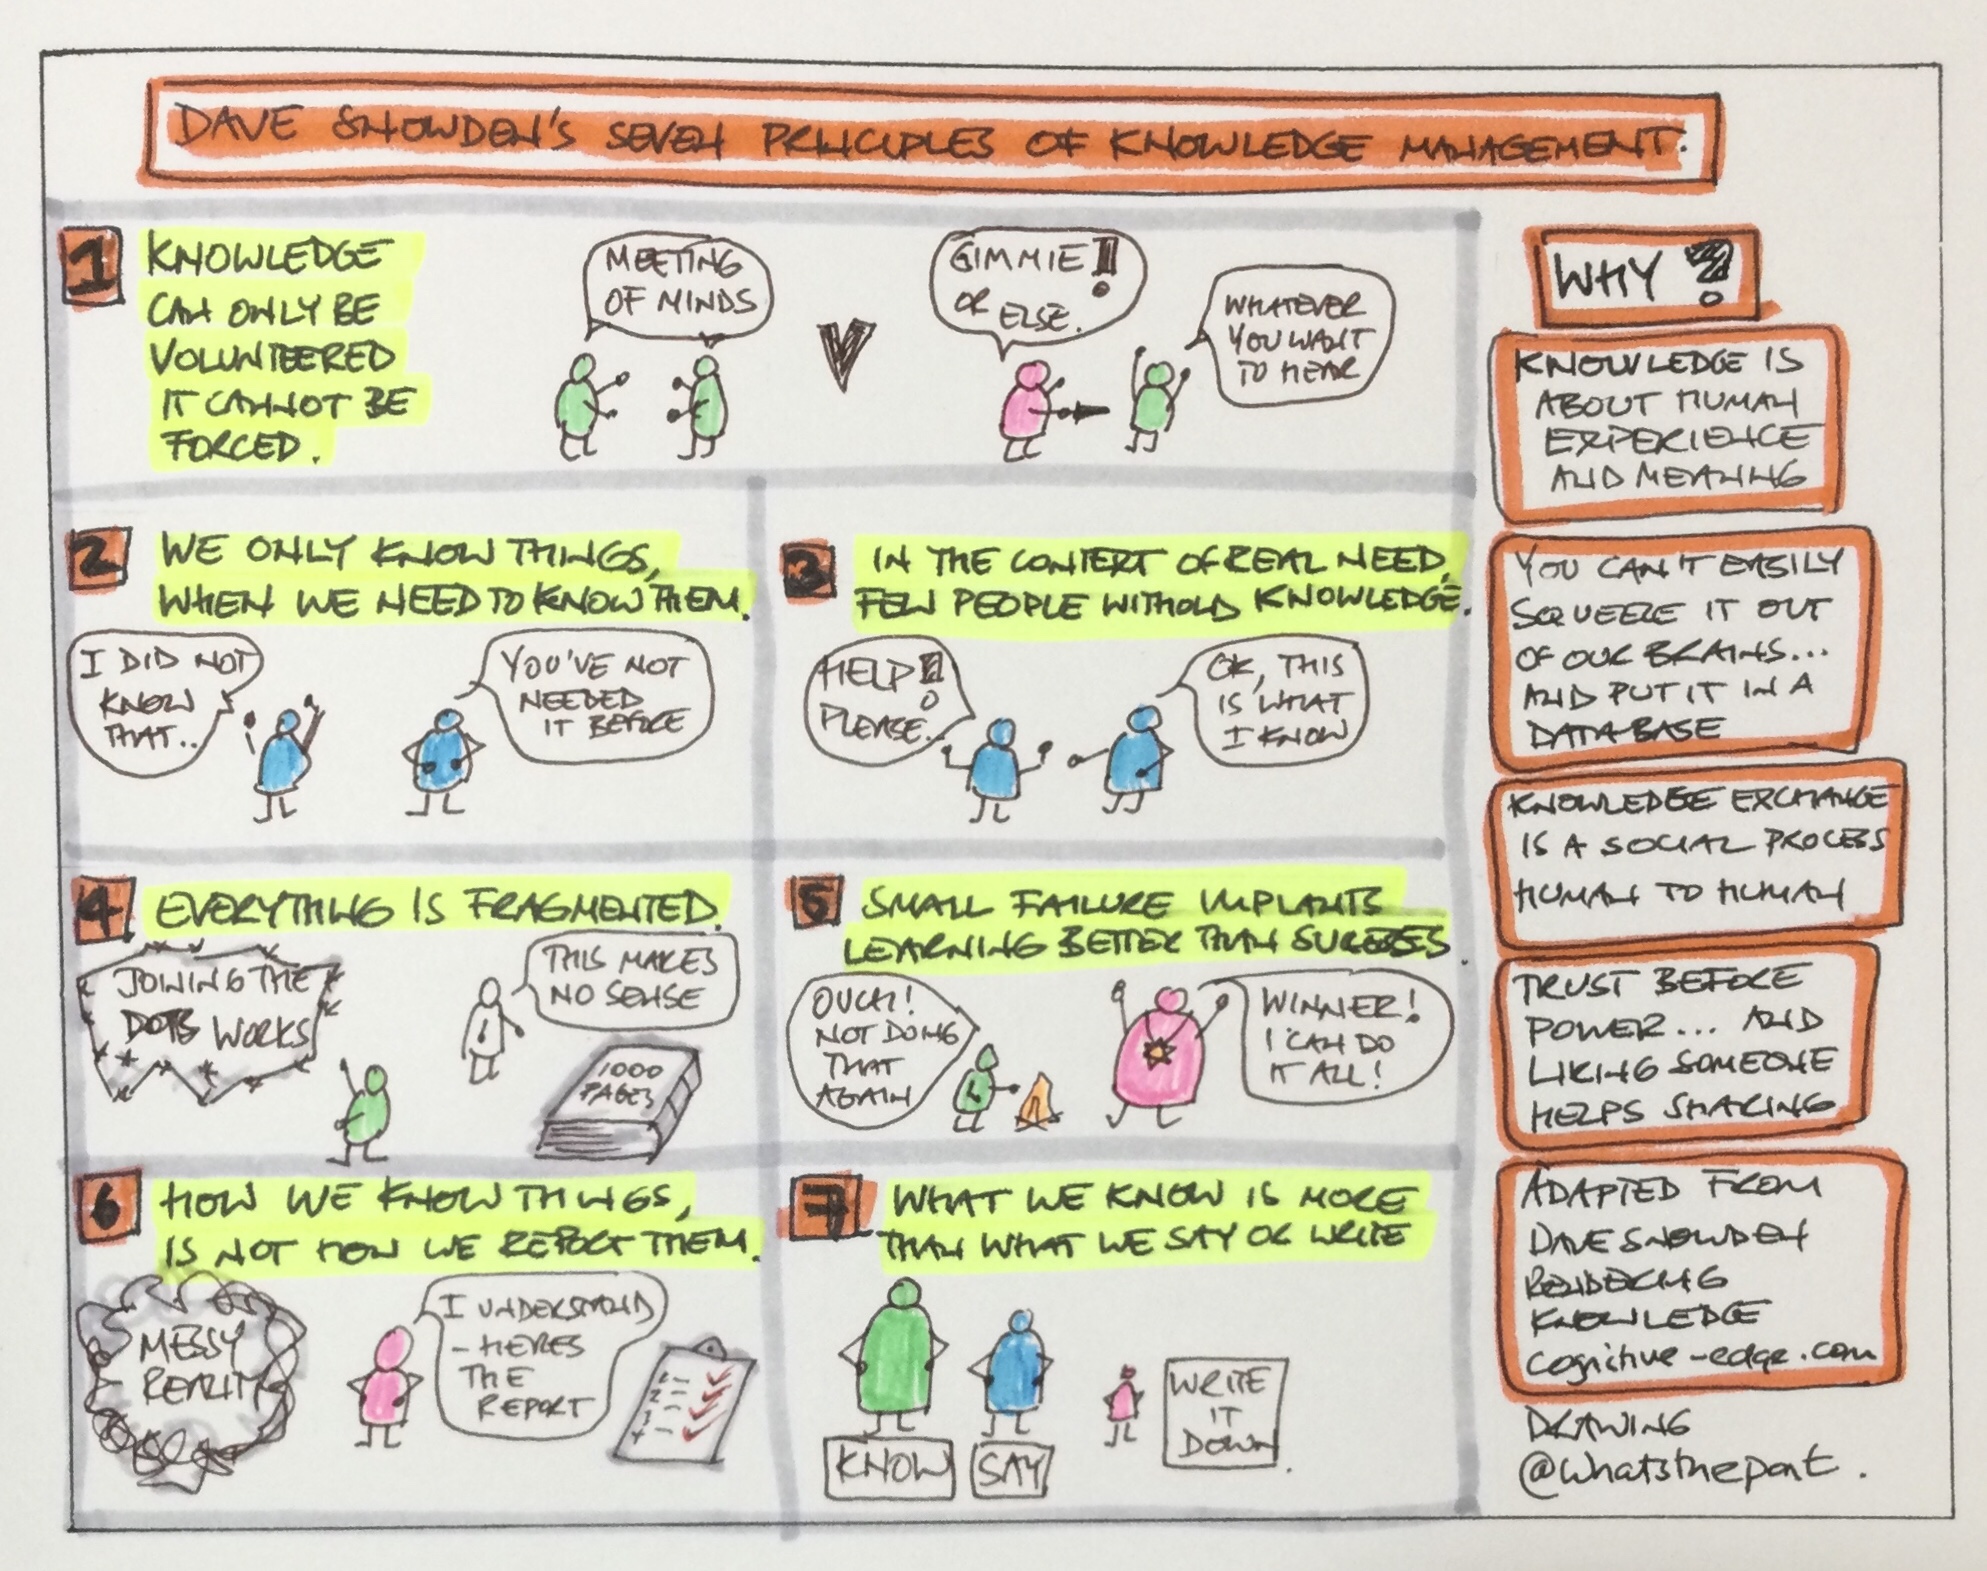 DAVE SNOWDEN'S SEVEN PRINCIPLES OF KNOWLEDGE MANAGEMENT.
1
KNOWLEDGE
CAN ONLY BE
VOLUNTEERED
IT CANNOT BE
FORCED.
MEETING
OF MINDS
V
GIMMIE!
OR ELSE.
WHATEVER
YOU WANT
TO HEAR
2
WE ONLY KNOW THINGS,
WHEN WE NEED TO KNOW THEM.
I DID NOT
KNOW
THAT..
YOU'VE NOT
NEEDED
IT BEFORE
3
IN THE CONTEXT OF REAL NEED,
FEW PEOPLE WITHOLD KNOWLEDGE.
HELP!
PLEASE..
OK, THIS
IS WHAT
I KNOW
4
EVERYTHING IS FRAGMENTED.
JOINING THE
DOTS WORKS
THIS MAKES
NO SENSE
1000
PAGES
5
SMALL FAILURE IMPLANTS
LEARNING BETTER THAN SUCCESS.
OUCH!
NOT DOING
THAT
AGAIN
WINNER!
I CAN DO
IT ALL!
6
HOW WE KNOW THINGS,
IS NOT HOW WE REPORT THEM.
MESSY
REALITY
I UNDERSTAND
- HERES
THE
REPORT
1 -
2 -
3 -
4 -
7
WHAT WE KNOW IS MORE
THAN WHAT WE SAY OR WRITE
KNOW
SAY
WRITE
IT
DOWN
WHY?
KNOWLEDGE IS
ABOUT HUMAN
EXPERIENCE
AND MEANING
YOU CAN'T EASILY
SQUEEZE IT OUT
OF OUR BRAINS...
AND PUT IT IN A
DATABASE
KNOWLEDGE EXCHANGE
IS A SOCIAL PROCESS
HUMAN TO HUMAN
TRUST BEFORE
POWER... AND
LIKING SOMEONE
HELPS SHARING
ADAPTED FROM
DAVE SNOWDEN
RENDERING
KNOWLEDGE
cognitive-edge.com
DRAWING
@whatsthepont.